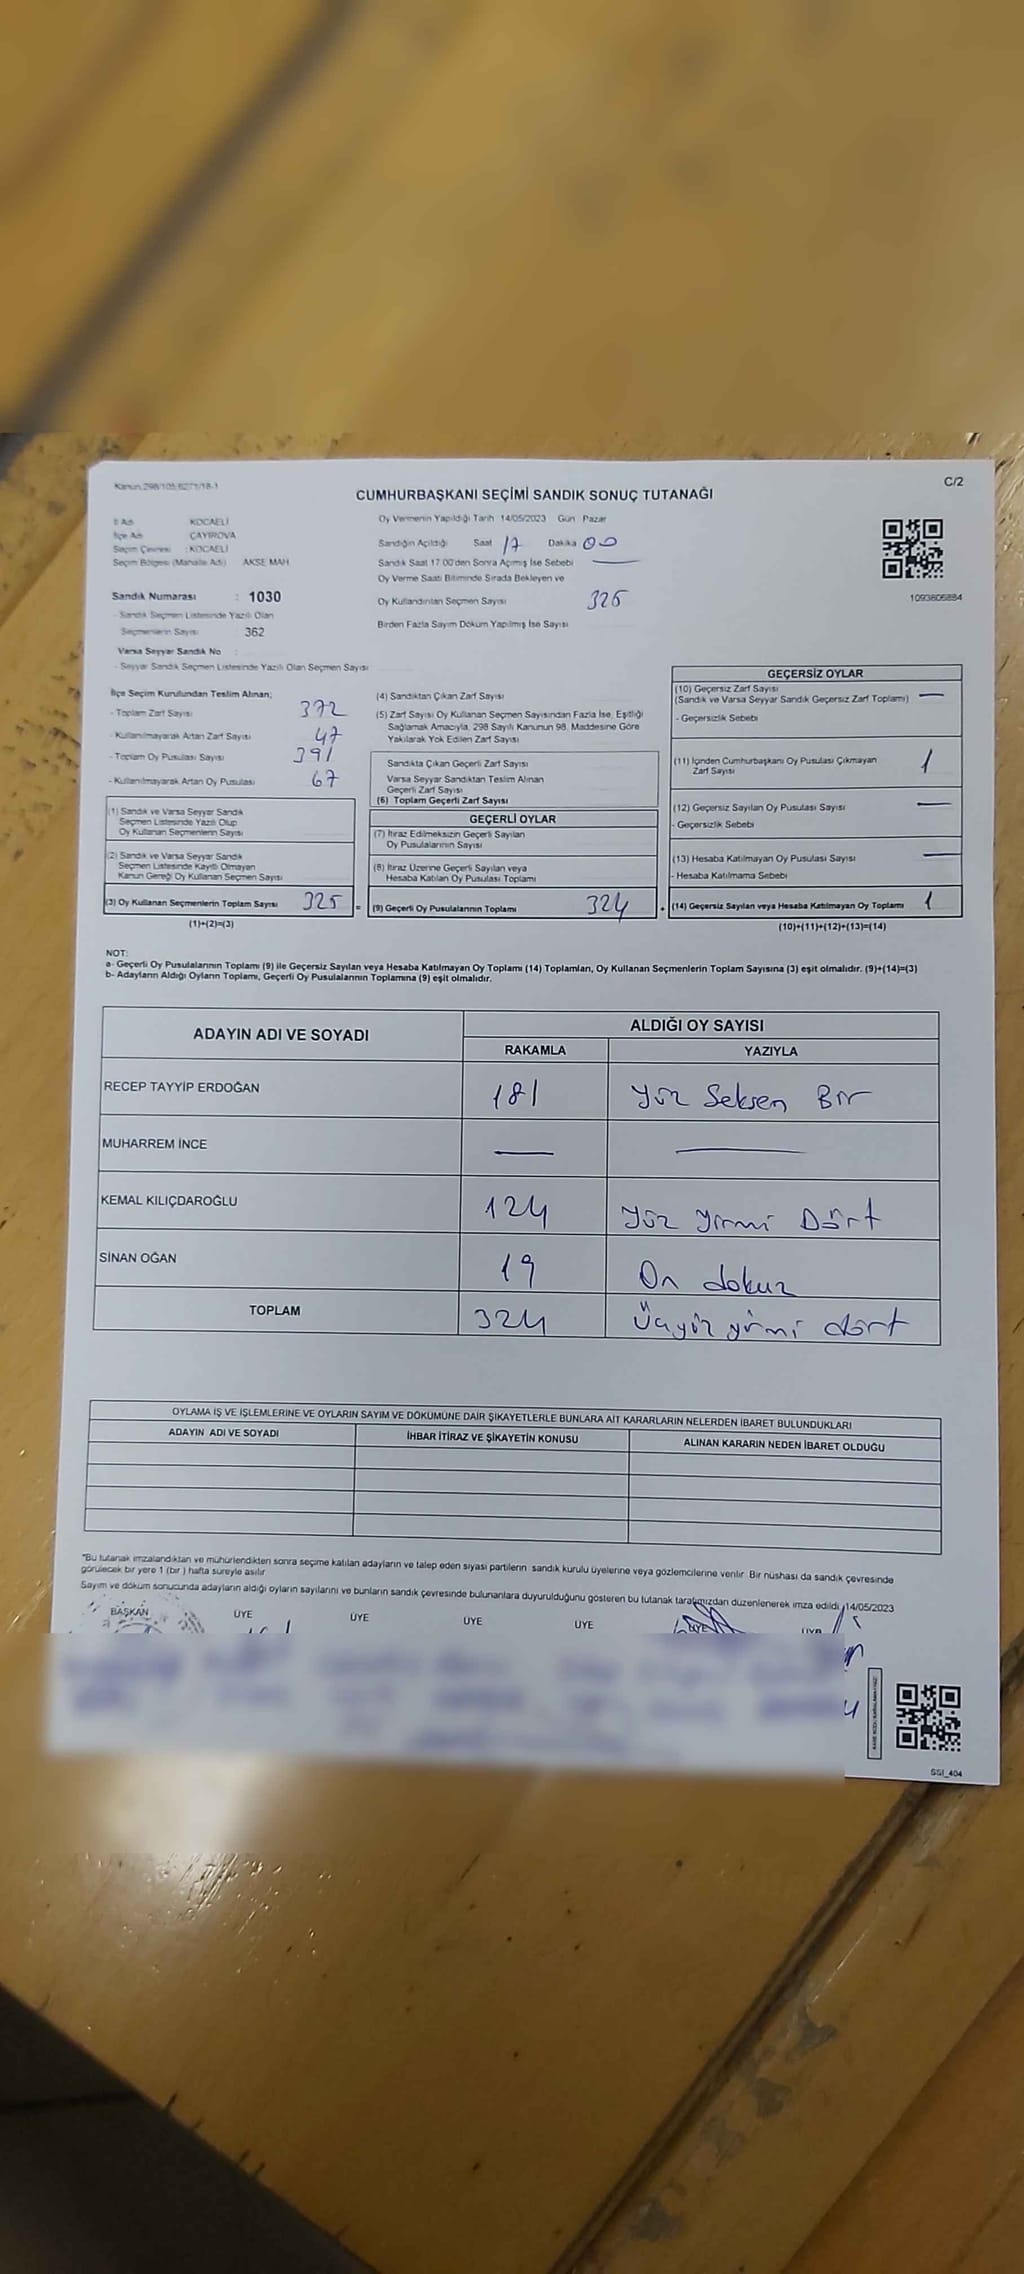 Kanun 298/105,6271/18-1
C/2
CUMHURBAŞKANI SEÇİMİ SANDIK SONUÇ TUTANAĞI
İl Adı KOCAELİ
İlçe Adı ÇAYIROVA
Seçim Çevresi : KOCAELİ
Seçim Bölgesi (Mahalle Adı) AKSE MAH.
Sandık Numarası : 1030
- Sandık Seçmen Listesinde Yazılı Olan
Seçmenlerin Sayısı 362
Varsa Seyyar Sandık No
- Seyyar Sandık Seçmen Listesinde Yazılı Olan Seçmen Sayısı
Oy Vermenin Yapıldığı Tarih 14/05/2023 Gün Pazar
Sandığın Açıldığı Saat 17 Dakika 00
Sandık Saat 17.00'den Sonra Açımış İse Sebebi
Oy Verme Saati Bitiminde Sırada Bekleyen ve
Oy Kullandırılan Seçmen Sayısı 325
Birden Fazla Sayım Döküm Yapılmış İse Sayısı
1093806884
İlçe Seçim Kurulundan Teslim Alınan;
- Toplam Zarf Sayısı 372
- Kullanılmayarak Artan Zarf Sayısı 47
- Toplam Oy Pusulası Sayısı 391
- Kullanılmayarak Artan Oy Pusulası 67
(1) Sandık ve Varsa Seyyar Sandık
Seçmen Listesinde Yazılı Olup
Oy Kullanan Seçmenlerin Sayısı
(2) Sandık ve Varsa Seyyar Sandık
Seçmen Listesinde Kayıtlı Olmayan
Kanun Gereği Oy Kullanan Seçmen Sayısı
(3) Oy Kullanan Seçmenlerin Toplam Sayısı 325 =
(1)+(2)=(3)
(4) Sandıktan Çıkan Zarf Sayısı
(5) Zarf Sayısı Oy Kullanan Seçmen Sayısından Fazla İse, Eşitliği
Sağlamak Amacıyla, 298 Sayılı Kanunun 98. Maddesine Göre
Yakılarak Yok Edilen Zarf Sayısı
Sandıkta Çıkan Geçerli Zarf Sayısı
Varsa Seyyar Sandıktan Teslim Alınan
Geçerli Zarf Sayısı
(6) Toplam Geçerli Zarf Sayısı
GEÇERLİ OYLAR
(7) İtiraz Edilmeksizin Geçerli Sayılan
Oy Pusulalarının Sayısı
(8) İtiraz Üzerine Geçerli Sayılan veya
Hesaba Katılan Oy Pusulası Toplamı
(9) Geçerli Oy Pusulalarının Toplamı 324 +
GEÇERSİZ OYLAR
(10) Geçersiz Zarf Sayısı —
(Sandık ve Varsa Seyyar Sandık Geçersiz Zarf Toplamı)
- Geçersizlik Sebebi
(11) İçinden Cumhurbaşkanı Oy Pusulası Çıkmayan 1
Zarf Sayısı
(12) Geçersiz Sayılan Oy Pusulası Sayısı —
- Geçersizlik Sebebi
(13) Hesaba Katılmayan Oy Pusulası Sayısı —
- Hesaba Katılmama Sebebi
(14) Geçersiz Sayılan veya Hesaba Katılmayan Oy Toplamı 1
(10)+(11)+(12)+(13)=(14)
NOT:
a- Geçerli Oy Pusulalarının Toplamı (9) ile Geçersiz Sayılan veya Hesaba Katılmayan Oy Toplamı (14) Toplamları, Oy Kullanan Seçmenlerin Toplam Sayısına (3) eşit olmalıdır. (9)+(14)=(3)
b- Adayların Aldığı Oyların Toplamı, Geçerli Oy Pusulalarının Toplamına (9) eşit olmalıdır.
ADAYIN ADI VE SOYADI ALDIĞI OY SAYISI
RAKAMLA YAZIYLA
RECEP TAYYİP ERDOĞAN 181 Yüz Seksen Bir
MUHARREM İNCE — —
KEMAL KILIÇDAROĞLU 124 Yüz Yirmi Dört
SİNAN OĞAN 19 On dokuz
TOPLAM 324 Üçyüz yirmi dört
OYLAMA İŞ VE İŞLEMLERİNE VE OYLARIN SAYIM VE DÖKÜMÜNE DAİR ŞİKAYETLERLE BUNLARA AİT KARARLARIN NELERDEN İBARET BULUNDUKLARI
ADAYIN ADI VE SOYADI İHBAR İTİRAZ VE ŞİKAYETİN KONUSU ALINAN KARARIN NEDEN İBARET OLDUĞU
"Bu tutanak imzalandıktan ve mühürlendikten sonra seçime katılan adayların ve talep eden siyasi partilerin sandık kurulu üyelerine veya gözlemcilerine verilir. Bir nüshası da sandık çevresinde
görülecek bir yere 1 (bir ) hafta süreyle asılır
Sayım ve döküm sonucunda adayların aldığı oyların sayılarını ve bunların sandık çevresinde bulunanlara duyurulduğunu gösteren bu tutanak tarafımızdan düzenlenerek imza edildi. 14/05/2023
BAŞKAN ÜYE ÜYE ÜYE ÜYE ÜYE ÜYE
SSI_404